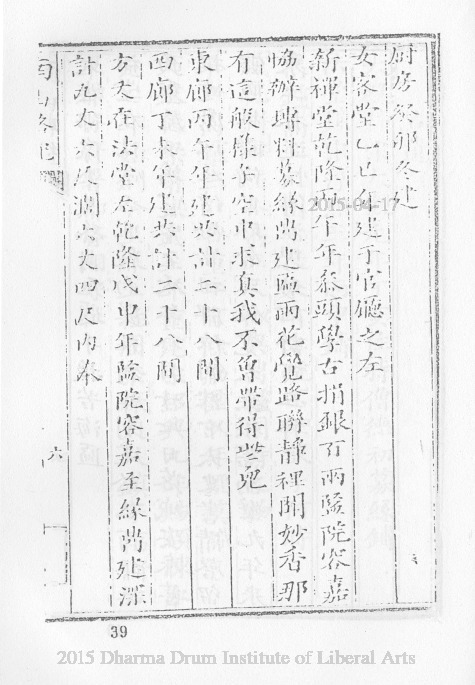 廚房癸卯冬建
女客堂乙巳年建于官廳之左
新禪堂乾隆丙午年叅頭學古捐銀百兩監院容嘉
恊辦磚料募緣啇建區雨花覺路聯靜裡聞妙香那
有這般樣子空中求真我不曾帶得些兒
東廊丙午年建共計二十八間
西廊丁未年建共計二十八間
方丈在法堂左乾隆戊申年監院容嘉至緣啇建深
計九丈六尺濶六丈四尺內奉
六
39
2015-04-17
2015 Dharma Drum Institute of Liberal Arts